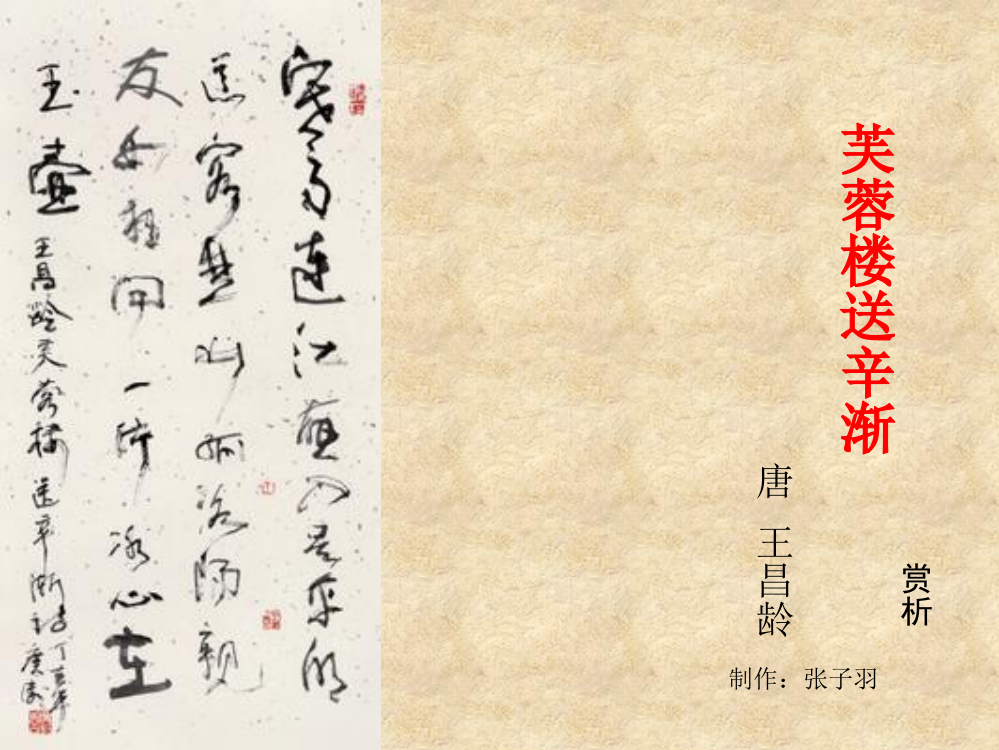 芙蓉楼送辛渐
唐 王昌龄
赏析
制作：张子羽
寒雨連江夜入吴平明
送客楚山孤洛陽親
友如相问一片冰心在
玉壶 王昌龄芙蓉楼送辛渐诗
丁亥年